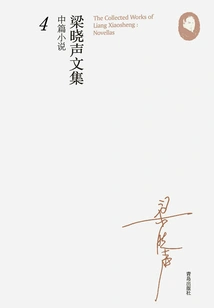 The Collected Works of
Liang Xiaosheng :
Novellas
梁晓声文集
中篇小说
4
梁晓声
青岛出版社